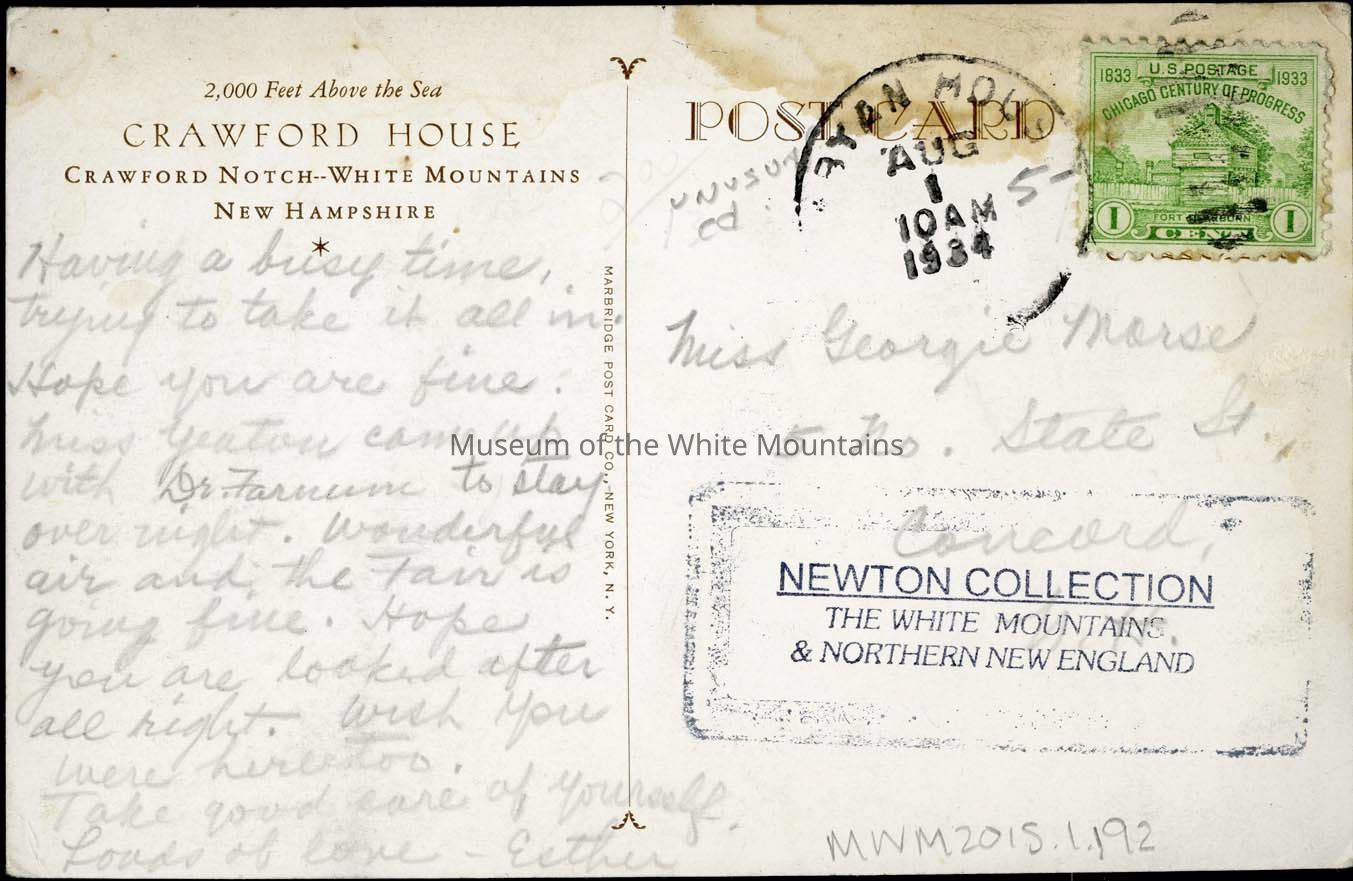 2,000 Feet Above the Sea
CRAWFORD HOUSE
CRAWFORD NOTCH--WHITE MOUNTAINS
NEW HAMPSHIRE
Having a busy time,
trying to take it all in.
Hope you are fine.
Miss Yeaton came up
with Dr. Farnum to stay
over night. Wonderful
air and the Fair is
going fine. Hope
you are looked after
all right. Wish you
were here too.
Take good care of yourself.
Loads of love - Esther
MARBRIDGE POST CARD CO., NEW YORK, N. Y.
POST CARD
UNUSUAL
cd
5-
AUG
1
10 AM
1934
1833 U.S. POSTAGE 1933
CHICAGO CENTURY OF PROGRESS
FORT DEARBORN
1 CENT 1
Miss Georgie Morse
5 No. State St,
Concord,
N.H.
NEWTON COLLECTION
THE WHITE MOUNTAINS
& NORTHERN NEW ENGLAND
MWM2015.1.192
Museum of the White Mountains